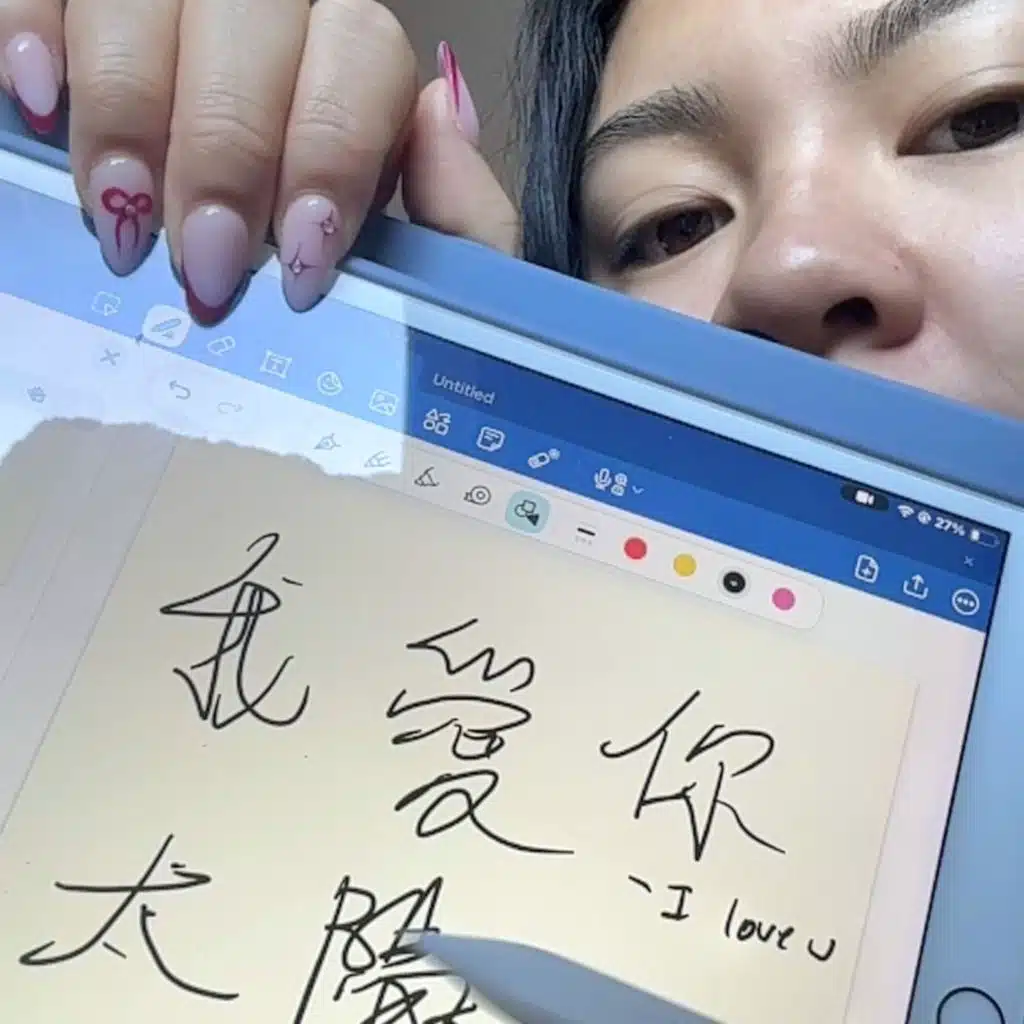 Untitled
27%
我愛你
- I love u
太陽